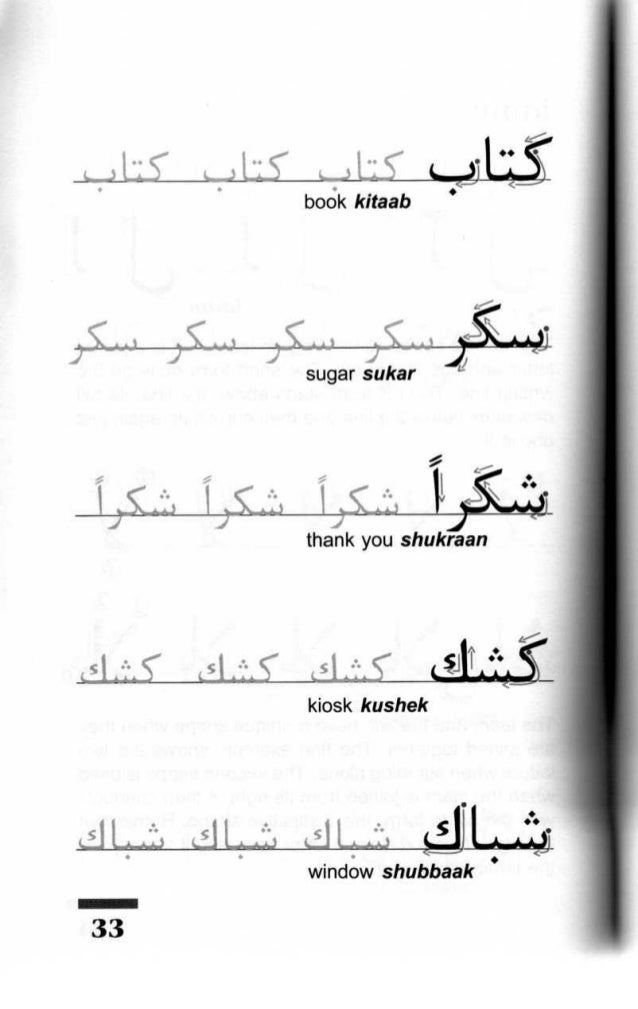 كتاب كتاب كتاب كتاب
book kitaab
سكر سكر سكر سكر سكر
sugar sukar
شكراً شكراً شكراً شكراً
thank you shukraan
كشك كشك كشك كشك
kiosk kushek
شباك شباك شباك شباك
window shubbaak
33